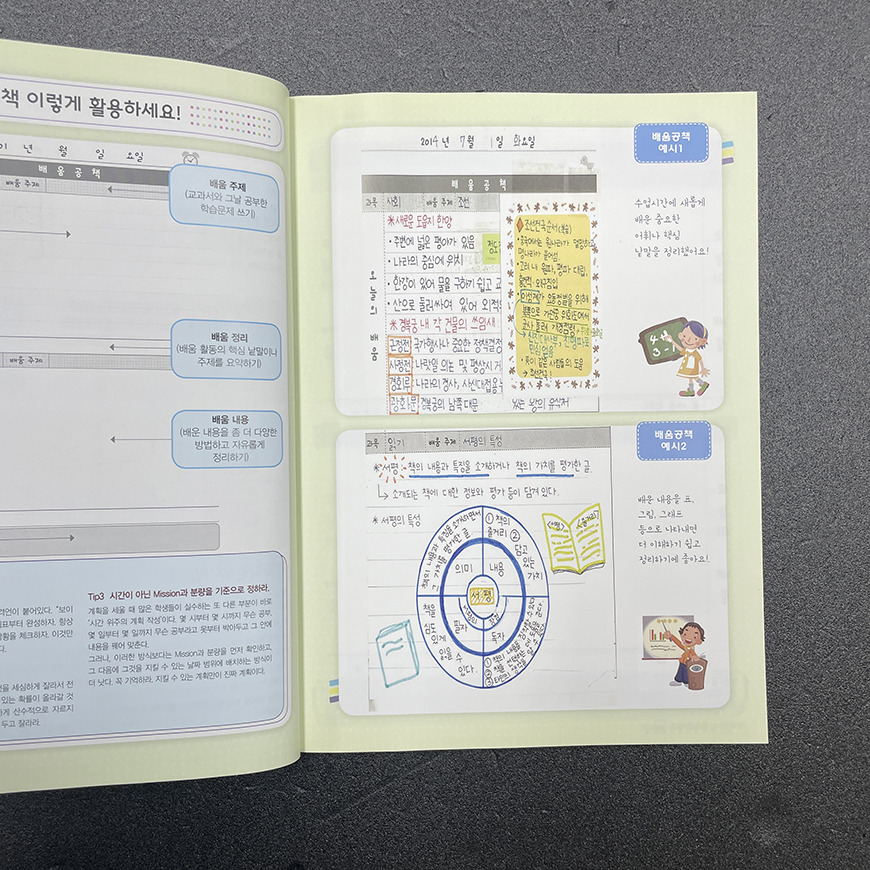 책 이렇게 활용하세요!
년 월 일 요일
배 움 공 책
배움 주제
배움 주제
(교과서와 그날 공부한
학습문제 쓰기)
배움 정리
(배움 활동의 핵심 낱말이나
주제를 요약하기)
배움 주제
배움 내용
(배운 내용을 좀 더 다양한
방법하고 자유롭게
정리하기)
격언이 붙어있다. "보이
표부터 완성하자. 항상
황을 체크하자. 이것만
다.
것을 세심하게 잘라서 전
있는 확률이 올라갈 것
하게 산수적으로 자르지
두고 잘라라.
Tip3 시간이 아닌 Mission과 분량을 기준으로 정하라.
계획을 세울 때 많은 학생들이 실수하는 또 다른 부분이 바로
'시간 위주의 계획 작성'이다. 몇 시부터 몇 시까지 무슨 공부,
몇 일부터 몇 일까지 무슨 공부라고 못부터 박아두고 그 안에
내용을 꿰어 맞춘다.
그러나, 이러한 방식보다는 Mission과 분량을 먼저 확인하고,
그 다음에 그것을 지킬 수 있는 날짜 범위에 배치하는 방식이
더 낫다. 꼭 기억하라. 지킬 수 있는 계획만이 진짜 계획이다.
배움공책
예시1
2014년 7월 1일 화요일
배 움 공 책
과목 사회 배움 주제 조선
오늘의 배움
※새로운 도읍지 한양
·주변에 넓은 평야가 있음
·나라의 중심에 위치
·한강이 있어 물을 구하기 쉽고 교
·산으로 둘러싸여 있어 외적의
※경복궁 내 각 건물의 쓰임새
근정전 국가행사나 중요한 정책결정
사정전 나랏일 의논 및 평상시 거
경회루 나라의 경사, 사신대접용
광화문 경복궁의 남쪽 대문
조선건국순서(복습)
·중국에서는 원나라가 멸망하고
명나라가 들어섬
·고려 내 원파, 명파 대립
이성계가 요동정벌을 위해
→ 조선건국!
수업시간에 새롭게
배운 중요한
어휘나 핵심
낱말을 정리했어요!
4
3-1
배움공책
예시2
과목 읽기 배움 주제 서평의 특성
※서평:- 책의 내용과 특징을 소개하거나 책의 가치를 평가한 글.
↳ 소개되는 책에 대한 정보와 평가 등이 담겨 있다.
※ 서평의 특성
책의 내용과 특징을 소개하면서
그 가치를 평가한 글
① 책의
줄거리 ②
담고
있는
가치
의미 내용
서평
필자
독자
책을
심도
있게
읽을 수
있다.
<서평>
<줄거리>
배운 내용을 표,
그림, 그래프
등으로 나타내면
더 이해하기 쉽고
정리하기에 좋아요!